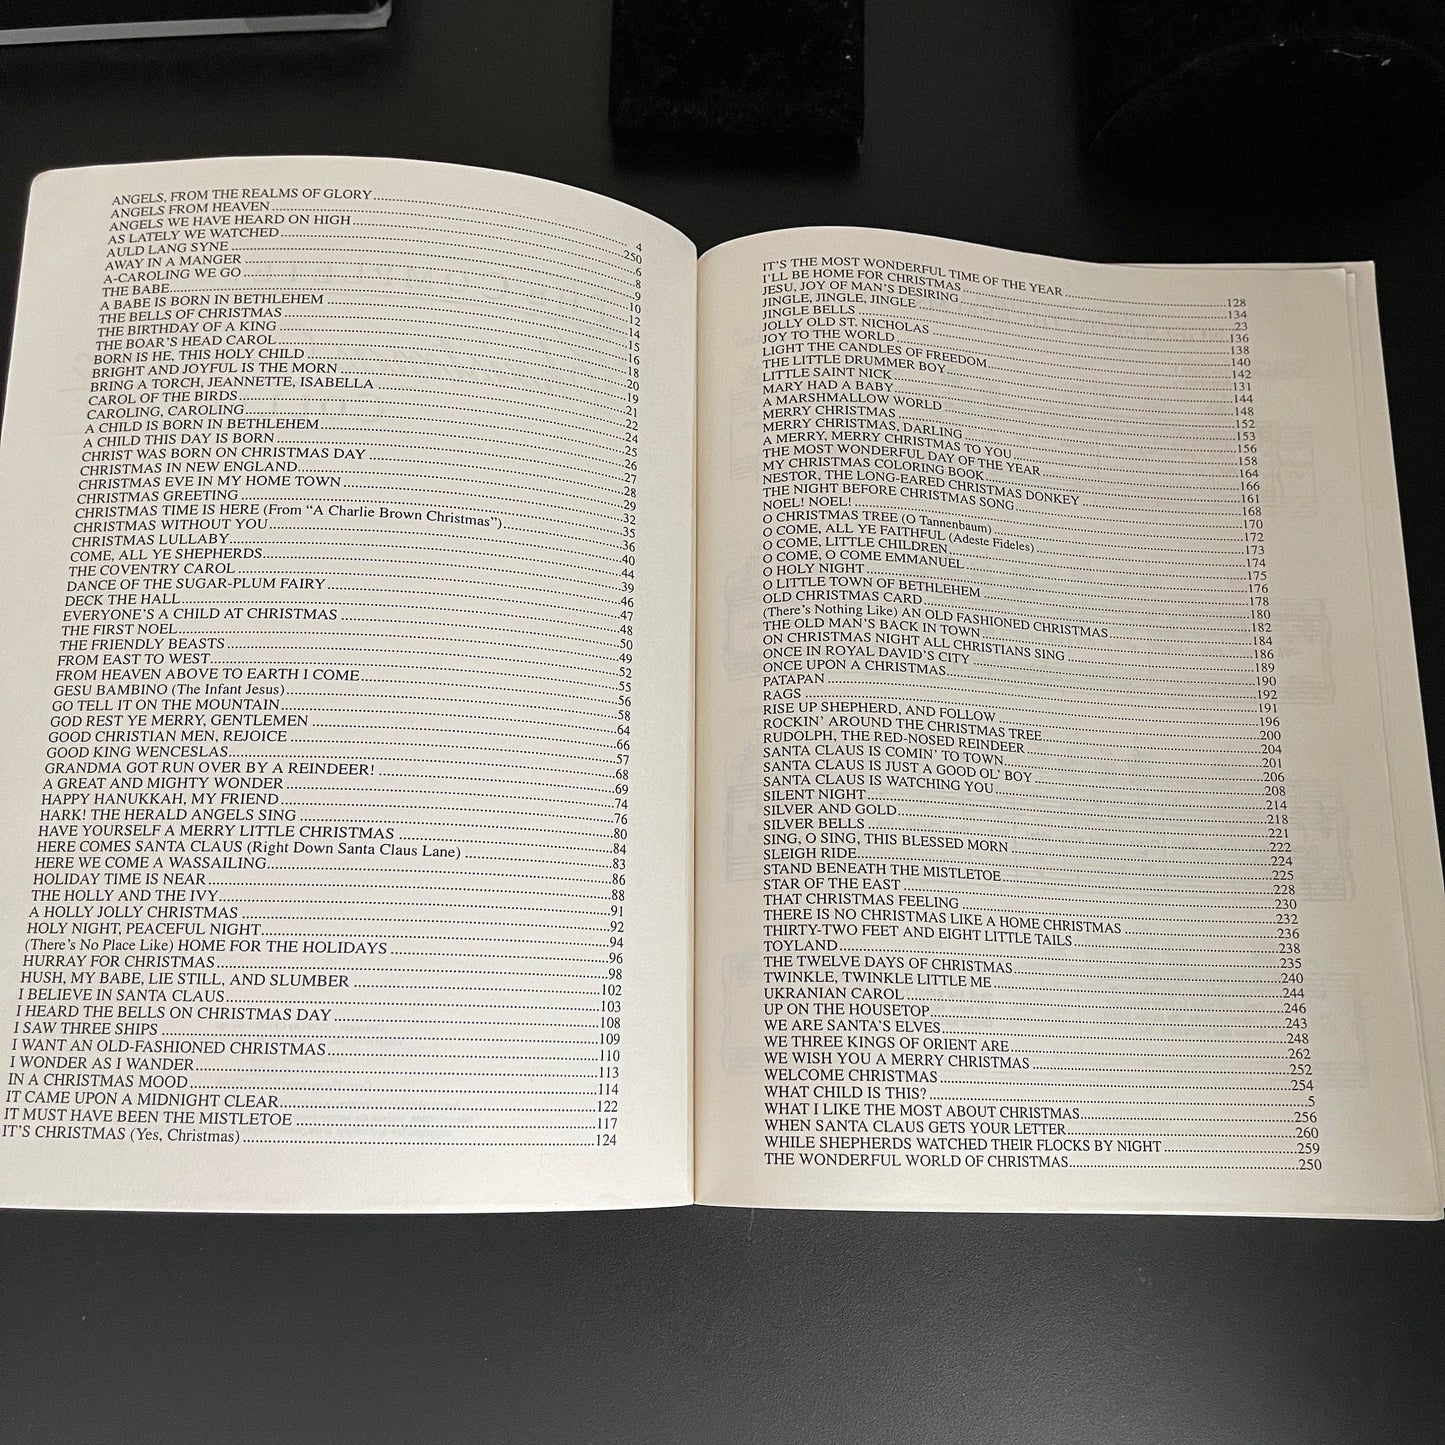 ANGELS, FROM THE REALMS OF GLORY 4
ANGELS FROM HEAVEN 250
ANGELS WE HAVE HEARD ON HIGH 6
AS LATELY WE WATCHED 8
AULD LANG SYNE 9
AWAY IN A MANGER 10
A-CAROLING WE GO 12
THE BABE 14
A BABE IS BORN IN BETHLEHEM 15
THE BELLS OF CHRISTMAS 16
THE BIRTHDAY OF A KING 18
THE BOAR'S HEAD CAROL 20
BORN IS HE, THIS HOLY CHILD 19
BRIGHT AND JOYFUL IS THE MORN 21
BRING A TORCH, JEANNETTE, ISABELLA 22
CAROL OF THE BIRDS 24
CAROLING, CAROLING 25
A CHILD IS BORN IN BETHLEHEM 26
A CHILD THIS DAY IS BORN 27
CHRIST WAS BORN ON CHRISTMAS DAY 28
CHRISTMAS IN NEW ENGLAND 29
CHRISTMAS EVE IN MY HOME TOWN 32
CHRISTMAS GREETING 35
CHRISTMAS TIME IS HERE (From “A Charlie Brown Christmas”) 36
CHRISTMAS WITHOUT YOU 40
CHRISTMAS LULLABY 44
COME, ALL YE SHEPHERDS 39
THE COVENTRY CAROL 46
DANCE OF THE SUGAR-PLUM FAIRY 47
DECK THE HALL 48
EVERYONE'S A CHILD AT CHRISTMAS 50
THE FIRST NOEL 49
THE FRIENDLY BEASTS 52
FROM EAST TO WEST 55
FROM HEAVEN ABOVE TO EARTH I COME 56
GESU BAMBINO (The Infant Jesus) 58
GO TELL IT ON THE MOUNTAIN 64
GOD REST YE MERRY, GENTLEMEN 66
GOOD CHRISTIAN MEN, REJOICE 57
GOOD KING WENCESLAS 68
GRANDMA GOT RUN OVER BY A REINDEER! 69
A GREAT AND MIGHTY WONDER 74
HAPPY HANUKKAH, MY FRIEND 76
HARK! THE HERALD ANGELS SING 80
HAVE YOURSELF A MERRY LITTLE CHRISTMAS 84
HERE COMES SANTA CLAUS (Right Down Santa Claus Lane) 83
HERE WE COME A WASSAILING 86
HOLIDAY TIME IS NEAR 88
THE HOLLY AND THE IVY 91
A HOLLY JOLLY CHRISTMAS 92
HOLY NIGHT, PEACEFUL NIGHT 94
(There's No Place Like) HOME FOR THE HOLIDAYS 96
HURRAY FOR CHRISTMAS 98
HUSH, MY BABE, LIE STILL, AND SLUMBER 102
I BELIEVE IN SANTA CLAUS 103
I HEARD THE BELLS ON CHRISTMAS DAY 108
I SAW THREE SHIPS 109
I WANT AN OLD-FASHIONED CHRISTMAS 110
I WONDER AS I WANDER 113
IN A CHRISTMAS MOOD 114
IT CAME UPON A MIDNIGHT CLEAR 122
IT MUST HAVE BEEN THE MISTLETOE 117
IT'S CHRISTMAS (Yes, Christmas) 124
IT'S THE MOST WONDERFUL TIME OF THE YEAR 128
I'LL BE HOME FOR CHRISTMAS 134
JESU, JOY OF MAN'S DESIRING 23
JINGLE, JINGLE, JINGLE 136
JINGLE BELLS 138
JOLLY OLD ST. NICHOLAS 140
JOY TO THE WORLD 142
LIGHT THE CANDLES OF FREEDOM 131
THE LITTLE DRUMMER BOY 144
LITTLE SAINT NICK 148
MARY HAD A BABY 152
A MARSHMALLOW WORLD 153
MERRY CHRISTMAS 156
MERRY CHRISTMAS, DARLING 158
A MERRY, MERRY CHRISTMAS TO YOU 164
THE MOST WONDERFUL DAY OF THE YEAR 166
MY CHRISTMAS COLORING BOOK 161
NESTOR, THE LONG-EARED CHRISTMAS DONKEY 168
THE NIGHT BEFORE CHRISTMAS SONG 170
NOEL! NOEL! 172
O CHRISTMAS TREE (O Tannenbaum) 173
O COME, ALL YE FAITHFUL (Adeste Fideles) 174
O COME, LITTLE CHILDREN 175
O COME, O COME EMMANUEL 176
O HOLY NIGHT 178
O LITTLE TOWN OF BETHLEHEM 180
OLD CHRISTMAS CARD 182
(There's Nothing Like) AN OLD FASHIONED CHRISTMAS 184
THE OLD MAN'S BACK IN TOWN 186
ON CHRISTMAS NIGHT ALL CHRISTIANS SING 189
ONCE IN ROYAL DAVID'S CITY 190
ONCE UPON A CHRISTMAS 192
PATAPAN 191
RAGS 196
RISE UP SHEPHERD, AND FOLLOW 200
ROCKIN' AROUND THE CHRISTMAS TREE 204
RUDOLPH, THE RED-NOSED REINDEER 201
SANTA CLAUS IS COMIN' TO TOWN 206
SANTA CLAUS IS JUST A GOOD OL' BOY 208
SANTA CLAUS IS WATCHING YOU 214
SILENT NIGHT 218
SILVER AND GOLD 221
SILVER BELLS 222
SING, O SING, THIS BLESSED MORN 224
SLEIGH RIDE 225
STAND BENEATH THE MISTLETOE 228
STAR OF THE EAST 230
THAT CHRISTMAS FEELING 232
THERE IS NO CHRISTMAS LIKE A HOME CHRISTMAS 236
THIRTY-TWO FEET AND EIGHT LITTLE TAILS 238
TOYLAND 235
THE TWELVE DAYS OF CHRISTMAS 240
TWINKLE, TWINKLE LITTLE ME 244
UKRANIAN CAROL 246
UP ON THE HOUSETOP 243
WE ARE SANTA'S ELVES 248
WE THREE KINGS OF ORIENT ARE 262
WE WISH YOU A MERRY CHRISTMAS 252
WELCOME CHRISTMAS 254
WHAT CHILD IS THIS? 5
WHAT I LIKE THE MOST ABOUT CHRISTMAS 256
WHEN SANTA CLAUS GETS YOUR LETTER 260
WHILE SHEPHERDS WATCHED THEIR FLOCKS BY NIGHT 259
THE WONDERFUL WORLD OF CHRISTMAS 250